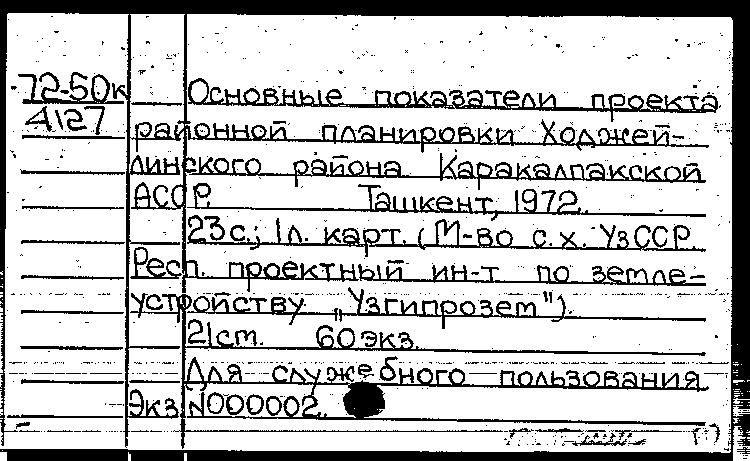 72-50к Основные показатели проекта
4127 районной планировки Ходжей-
линского района Каракалпакской
АССР. Ташкент, 1972.
23с.; 1л. карт. (М-во с.х. УзССР.
Респ. проектный ин-т по земле-
устройству „Узгипрозем").
21см. 60экз.
Для служебного пользования
Экз.N000002.